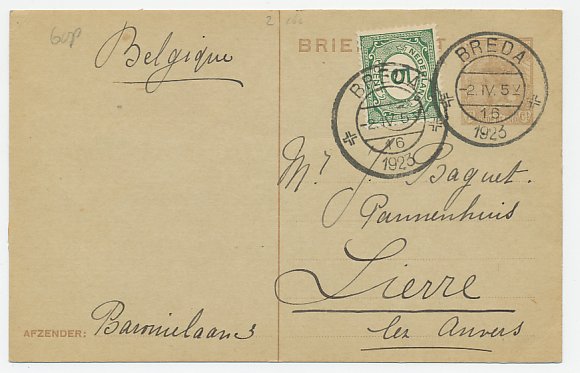 Belgique
BRIEFKAART
BREDA
-2.IV.5V
16
1923
BREDA
-2.IV.5V
16
1923
10
NEDERLAND
Mr J. Baguet.
Pannenhuis
Lierre
lez Anvers
AFZENDER: Baronielaan 3